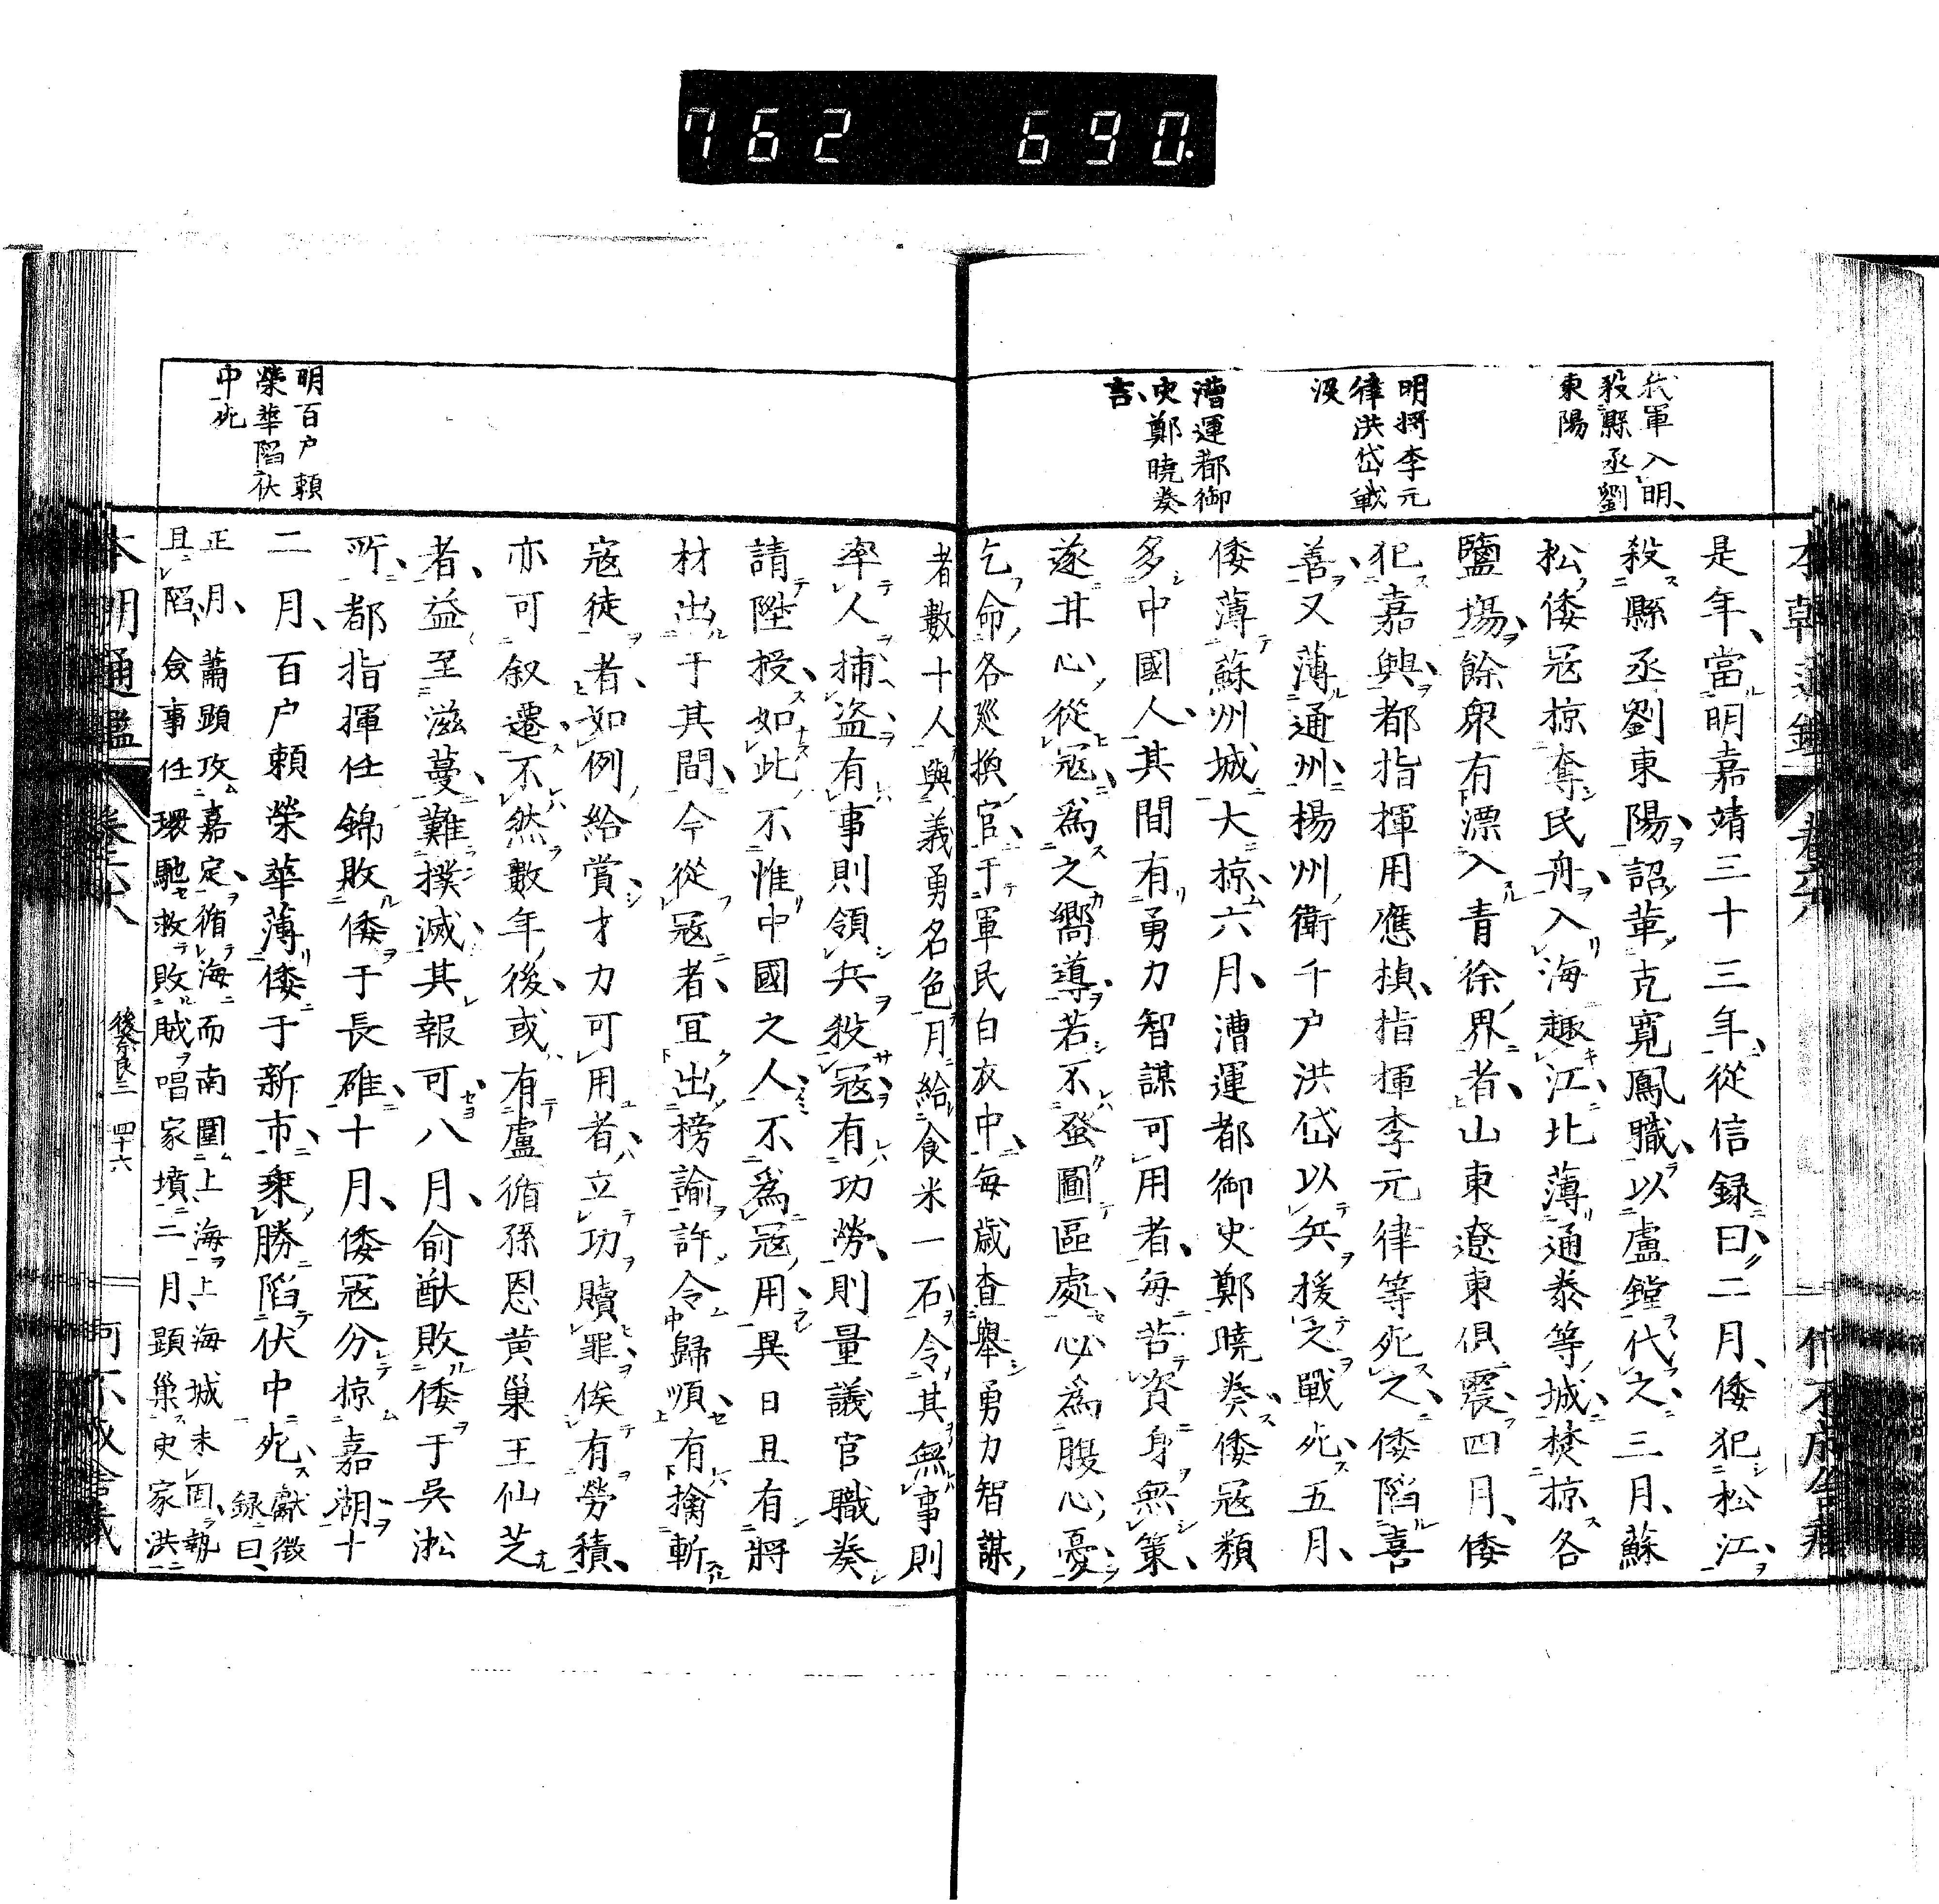 762 690
我軍入明、
殺縣丞劉
東陽
明將李元
律洪岱戰
没
漕運都御
史鄭曉奏
言、
是年、當明嘉靖三十三年、從信録曰、二月、倭犯松江、
殺縣丞劉東陽、詔革克寬鳳職、以盧鏜代之、三月、蘇
松倭冦掠奪民舟、入海趣江北、薄通泰等城、焚掠各
鹽塲、餘衆有漂入青徐界者、山東遼東俱震、四月、倭
犯嘉興、都指揮用應楨、指揮李元律等死之、倭陷嘉
善、又薄通州、楊州衛千户洪岱以兵援之戰死、五月、
倭薄蘇州城、大掠、六月、漕運都御史鄭曉奏、倭冦類
多中國人、其間有勇力智謀可用者、毎苦資身無策、
遂甘心從冦、爲之嚮導、若不登圖區處、必爲腹心憂、
乞命各廵撫官、于軍民白衣中、毎歳査舉勇力智謀
者數十人、與義勇名色、月給食米一石、令其無事則
率人捕盗、有事則領兵殺冦、有功勞、則量議官職奏
請陞授、如此、不惟中國之人、不爲冦用、異日且有將
材出于其間、今從冦者、宜出榜諭、許令歸順、有擒斬
冦徒者、如例給賞、才力可用者、立功贖罪、俟有勞積、
亦可叙遷、不然數年後、或有盧循孫恩黄巢王仙芝
者、益至滋蔓、難撲滅、其報可、八月、俞猷敗倭于呉淞
所、都指揮任錦敗倭于長碓、十月、倭冦分掠嘉湖、十
二月、百户頼榮華薄倭于新市、乗勝陷伏中死、獻徴
録曰、
正月、蕭顕攻嘉定、循海而南圍上海、上海城未固、執
且陷、僉事任環馳救敗賊唱家墳、二月、顕巢史家洪
明百户頼
榮華陷伏
中死
後奈良三 四十六